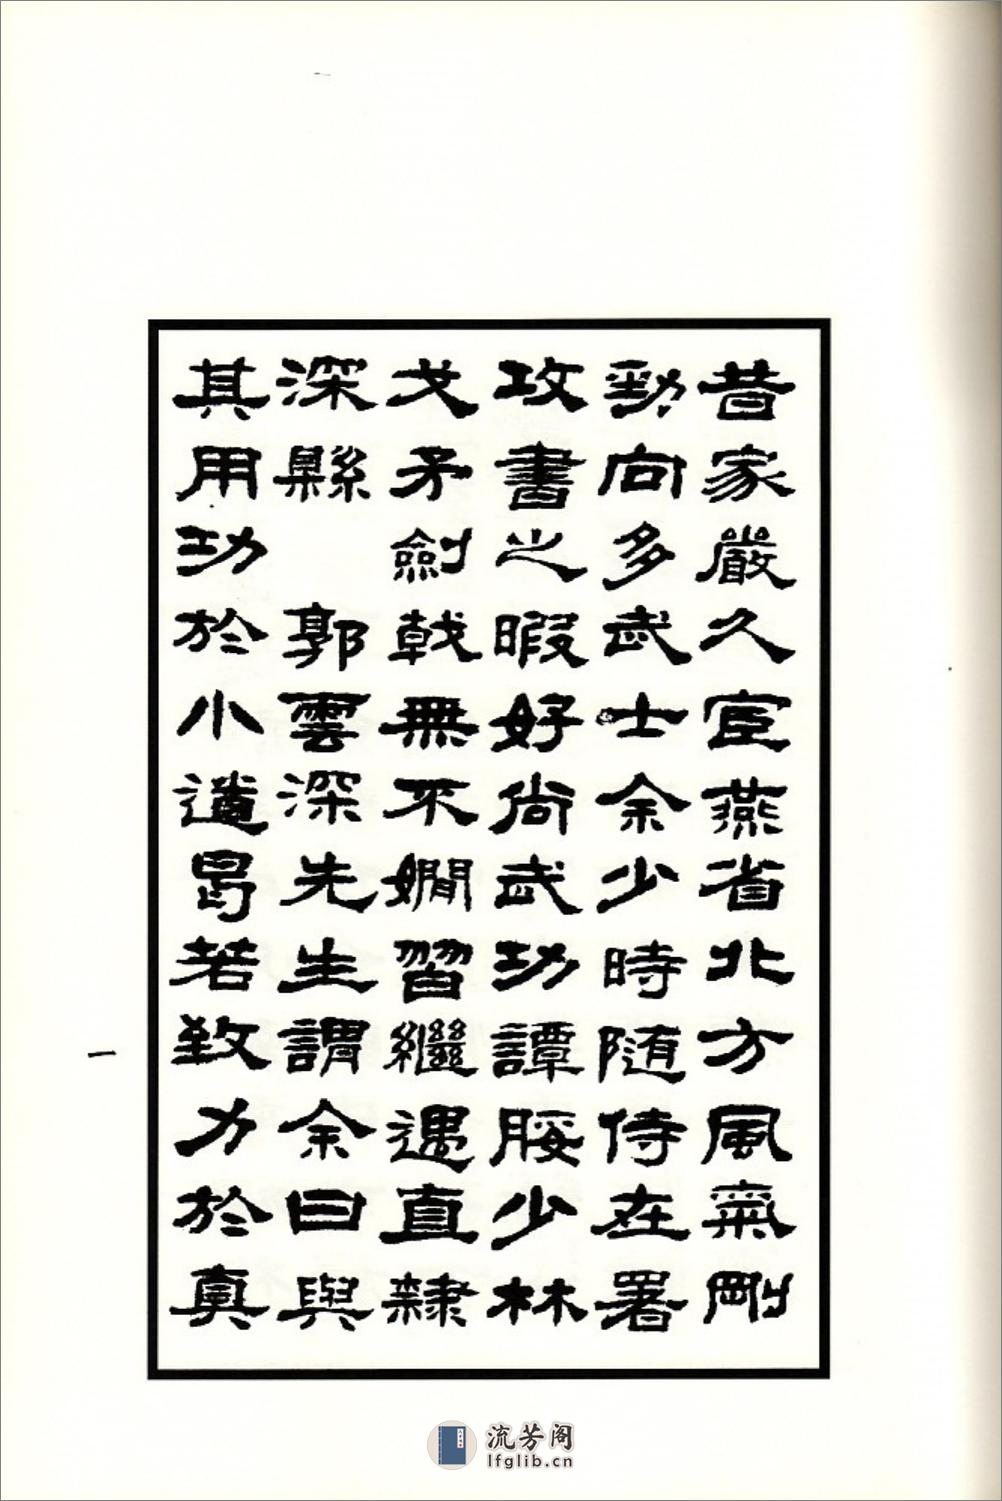 昔家嚴久宦燕省北方風氣剛
勁向多武士余少時随侍在署
攻書之暇好尚武功譚腿少林
戈矛劍戟無不嫻習繼遇直隸
深縣 郭雲深先生謂余曰與
其用功於小道曷若致力於真
一
流芳阁
lfglib.cn